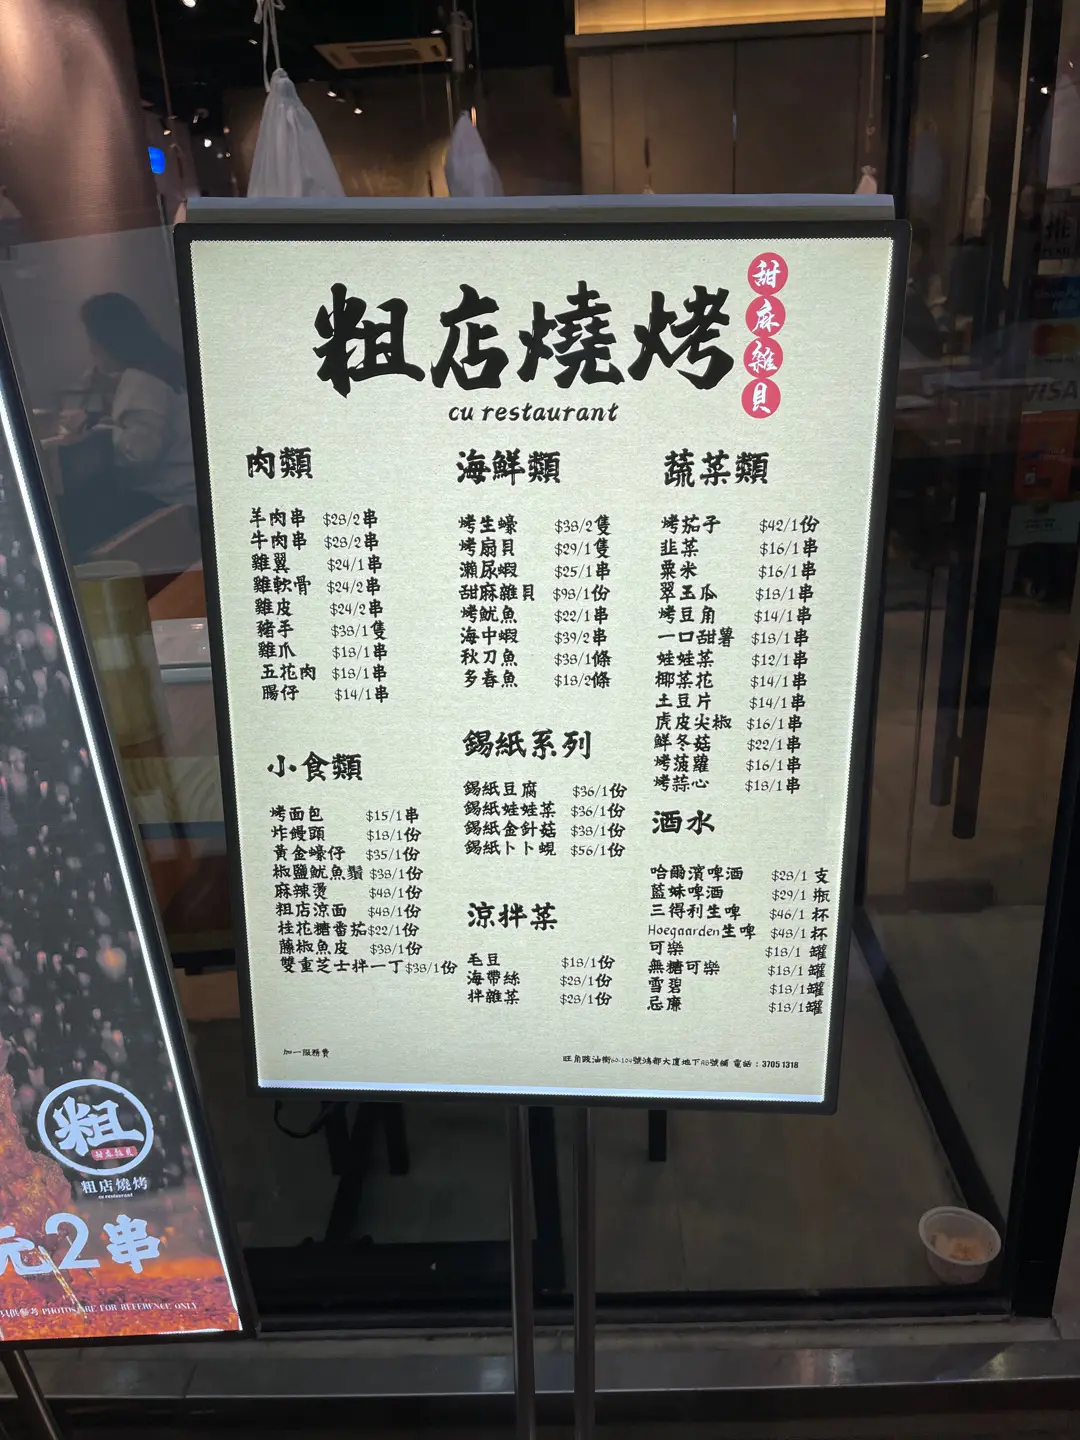 粗店燒烤
甜麻雜貝
cu restaurant
肉類
羊肉串 $28/2串
牛肉串 $28/2串
雞翼 $24/1串
雞軟骨 $24/2串
雞皮 $24/2串
豬手 $38/1隻
雞爪 $18/1串
五花肉 $18/1串
腸仔 $14/1串
小食類
烤面包 $15/1串
炸饅頭 $18/1份
黃金蠔仔 $35/1份
椒鹽魷魚鬚 $38/1份
麻辣燙 $48/1份
粗店涼面 $48/1份
桂花糖番茄 $22/1份
藤椒魚皮 $38/1份
雙重芝士拌一丁 $38/1份
海鮮類
烤生蠔 $38/2隻
烤扇貝 $29/1隻
瀨尿蝦 $25/1串
甜麻雜貝 $98/1份
烤魷魚 $22/1串
海中蝦 $39/2串
秋刀魚 $38/1條
多春魚 $18/2條
錫紙系列
錫紙豆腐 $36/1份
錫紙娃娃菜 $36/1份
錫紙金針菇 $38/1份
錫紙卜卜蜆 $56/1份
涼拌菜
毛豆 $18/1份
海帶絲 $28/1份
拌雜菜 $28/1份
蔬菜類
烤茄子 $42/1份
韭菜 $16/1串
粟米 $16/1串
翠玉瓜 $18/1串
烤豆角 $14/1串
一口甜薯 $18/1串
娃娃菜 $12/1串
椰菜花 $14/1串
土豆片 $14/1串
虎皮尖椒 $16/1串
鮮冬菇 $22/1串
烤菠蘿 $16/1串
烤蒜心 $18/1串
酒水
哈爾濱啤酒 $28/1支
藍妹啤酒 $29/1瓶
三得利生啤 $46/1杯
Hoegaarden生啤 $48/1杯
可樂 $18/1罐
無糖可樂 $18/1罐
雪碧 $18/1罐
忌廉 $18/1罐
加一服務費
旺角豉油街60-104號鴻都大廈地下A8號鋪 電話：3705 1318
粗
甜麻雜貝
粗店燒烤
cu restaurant
元2串
PHOTOS ARE FOR REFERENCE ONLY
VISA